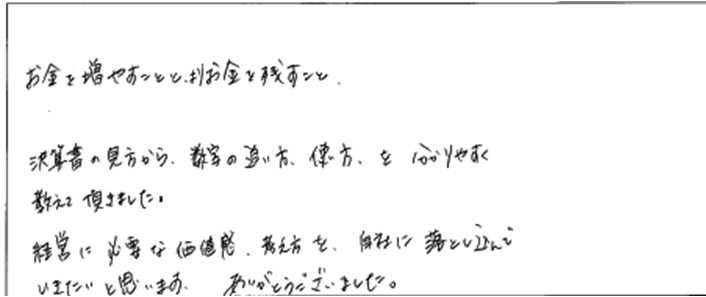 お金を増やすことより、お金を残すこと、
決算書の見方から、数字の追い方、使い方、を分かりやすく
教えて頂きました。
経営に必要な価値感、考え方を、自社に落とし込んで
いきたいと思います。ありがとうございました。